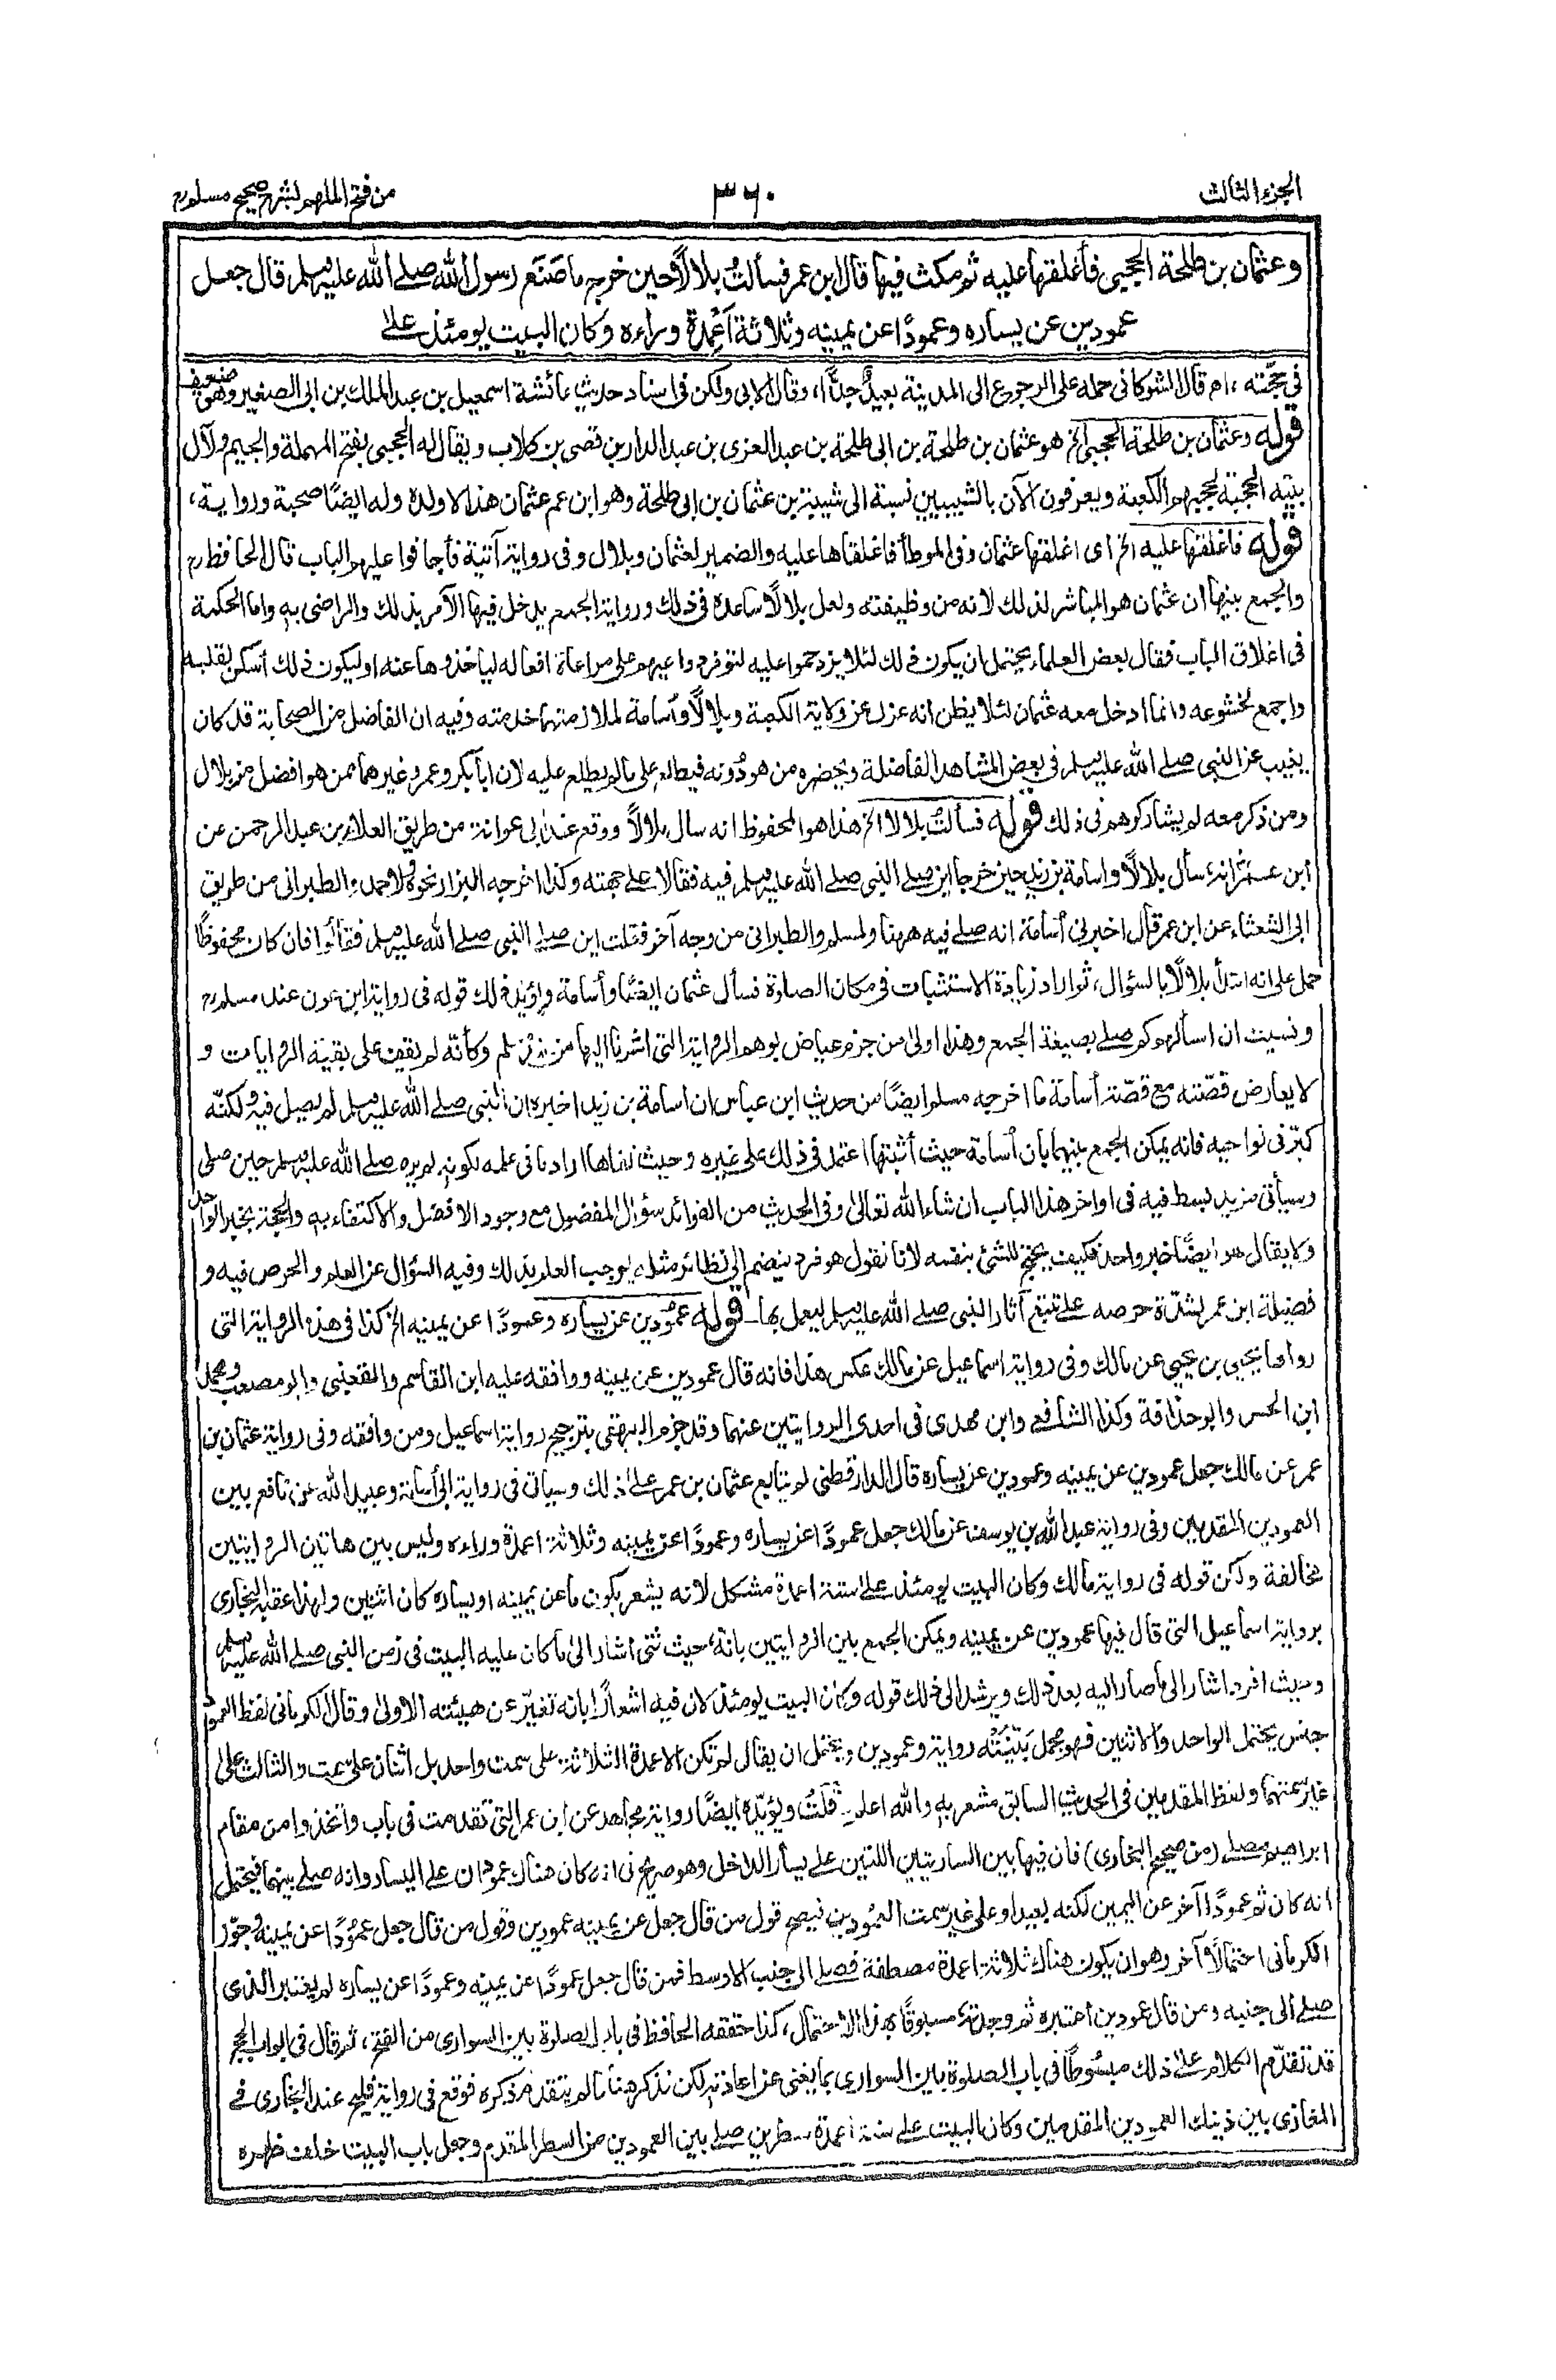 الجزء الثالث
٣٦٠
من فتح الملهم لشرح صحيح مسلم رح
وعثمان بن طلحة الحجبي فأغلقها عليه ثم مكث فيها قال ابن عمر فسألتُ بلالاً حين خرج ما صَنَع رسول الله صلے الله عليه وسلم قال جعل
عمودين عن يساره وعموداً عن يمينه وثلاثة أَعْمِدة وراءه وكان البيت يومئذ علے
فى حجّته، اه قال الشوكانى حمله على الرجوع الى المدينة بعيدٌ جدًّا، وقال الابى ولكن فى اسناد حديث عائشة اسمعيل بن عبد الملك بن ابى الصغير وهو ضعيف
قوله وعثمان بن طلحة الحجبى الخ هو عثمان بن طلحة بن ابى طلحة بن عبد العزى بن عبد الدار بن قصى بن كلاب ويقال له الحجبى بفتح المهملة والجيم ولآل
بيته الحجبة لحجبهم الكعبة ويعرفون الآن بالشيبيين نسبة الى شيبة بن عثمان بن ابى طلحة وهو ابن عم عثمان هذا لا ولده وله ايضًا صحبة ورواية،
قوله فاغلقها عليه الخ اى اغلقها عثمان وفى الموطأ فاغلقاها عليه والضمير لعثمان وبلال وفى رواية آتية فأجافوا عليهم الباب قال الحافظ رح
والجمع بينها ان عثمان هو المباشر لذلك لانه من وظيفته ولعل بلالًا ساعده فى ذلك ورواية الجمع يدخل فيها الآمر بذلك والراضى به واما الحكمة
فى اغلاق الباب فقال بعض العلماء يحتمل ان يكون ذلك لئلا يزدحموا عليه لتوفر دواعيهم على مراعاة افعاله ليأخذوها عنه او ليكون ذلك أسكن لقلبه
واجمع لخشوعه وانما ادخل معه عثمان لئلا يظن انه عزل عن ولاية الكعبة وبلالًا وأسامة لملازمتهما خدمته وفيه ان الفاضل من الصحابة قد كان
يغيب عن النبى صلے الله عليه وسلم فى بعض المشاهد الفاضلة ويحضره من هو دُونه فيطلع على مالم يطلع عليه لان ابا بكر وعمر وغيرهما ممن هو افضل من بلال
ومن ذكر معه لم يشاركوهم فى ذلك قوله فسألتُ بلالا الخ هذا هو المحفوظ انه سال بلالاً ووقع عند ابى عوانة من طريق العلاء بن عبد الرحمن عن
ابن عمرؓ انه سأل بلالًا واسامة بن زيد حين خرجا اين صلى النبى صلے الله عليه وسلم فيه فقالا علے جهته وكذا اخرجه البزار نحوه ولاحمد والطبرانى من طريق
ابى الشعثاء عن ابن عمر قال اخبرنى أسامة انه صلے فيه ههنا ولمسلم والطبرانى من وجه آخر فقلت اين صلے النبى صلے الله عليه وسلم فقالوا فان كان محفوظًا
حمل على انه ابتدأ بلالًا بالسؤال، ثم اراد زيادة الاستثبات فى مكان الصلوة فسأل عثمان ايضًا وأسامة ويؤيد ذلك قوله فى رواية ابن عون عند مسلم رح
ونسيت ان اسألهم كم صلے بصيغة الجمع وهذا اولى من جزم عياض بوهم الرواية التى اشرنا اليها من عند مسلم وكأنّه لم يقف على بقية الروايات و
لا يعارض قصّته مع قصّة أسامة ما اخرجه مسلم ايضًا من حديث ابن عباس ان اسامة بن زيد اخبره ان النبى صلے الله عليه وسلم لم يصل فيه ولكنّه
كبّر فى نواحيه فانه يمكن الجمع بينهما بان أسامة حيث أثبتها اعتمد فى ذلك على غيره وحيث نفاها اراد ما فى علمه لكونه لم يره صلے الله عليه وسلم حين صلى
وسيأتى مزيد بسط فيه فى اواخر هذا الباب ان شاء الله تعالى وفى الحديث من الفوائد سؤال المفضول مع وجود الافضل والاكتفاء به والحجة بخبر الواحد
ولا يقال هو ايضًا خبر واحد فكيف يحتج للشئ بنفسه لانا نقول هو فرد ينضم الى نظائر مثله يوجب العلم بذلك وفيه السؤال عن العلم والحرص فيه و
فضيلة ابن عمر لشدّة حرصه علے تتبع آثار النبى صلے الله عليه وسلم ليعمل بها قوله عموُدين عن يساره وعمودًا عن يمينه الخ كذا فى هذه الرواية التى
رواها يحيى بن يحيى عن مالك وفى رواية اسماعيل عن مالك عكس هذا فانه قال عمودين عن يمينه ووافقه عليه ابن القاسم والقعنبى وابو مصعب ومحمد
ابن الحسن وابو حذافة وكذا الشافعے وابن مهدى فى احدى الروايتين عنهما وقد جزم البيهقى بترجيح رواية اسماعيل ومن وافقه وفى رواية عثمان بن
عمر عن مالك جعل عمودين عن يمينه وعمودين عن يساره قال الدارقطنى لم يتابع عثمان بن عمر علے ذلك وسياتى فى رواية ابى أسامة وعبيد الله عن نافع بين
العمودين المقدمين وفى رواية عبد الله بن يوسف عن مالك جعل عمودًا عن يساره وعمودًا عن يمينه وثلاثة اعمدة وراءه وليس بين هاتين الروايتين
مخالفة ولكن قوله فى رواية مالك وكان البيت يومئذ علے ستة اعمدة مشكل لانه يشعر بكون ما عن يمينه او يساره كان اثنين ولهذا عقبه البخارى
برواية اسماعيل التى قال فيها عمودين عن يمينه ويمكن الجمع بين الروايتين بانه حيث ثنى أشار الى ما كان عليه البيت فى زمن النبى صلے الله عليه وسلم
وحيث افرد اشار الى ما صار اليه بعد ذلك ويرشد الى ذلك قوله وكان البيت يومئذ لان فيه اشعارًا بانه تغيّر عن هيئته الاولى وقال الكرمانى لفظ العمود
جنس يحتمل الواحد والاثنين فهو مجمل بَيّنَتْه رواية وعمودين ويحتمل ان يقال لم تكن الاعمدة الثلاثة على سمت واحد بل اثنان على سمت والثالث على
غير سمتهما ولفظ المقدمين فى الحديث السابق مشعر به والله اعلم، قلتُ ويؤيّده ايضًا رواية مجاهد عن ابن عمر التى تقدمت فى باب واتخذوا من مقام
ابراهيم مصلے (من صحيح البخارى) فان فيها بين الساريتين اللتين علے يسار الداخل وهو صريح فى انه كان هناك عمودان على اليسار وانه صلے بينهما فيحتمل
انه كان ثم عموداً آخر عن اليمين لكنه بعيد او على غير سمت العمودين فيصح قول من قال جعل عن يمينه عمودين وقول من قال جعل عمُودًا عن يمينه وجوّز
الكرمانى احتمالًا آخر وهو ان يكون هناك ثلاثة اعمدة مصطفة فصلے الى جنب الاوسط فمن قال جعل عمودًا عن يمينه وعمودًا عن يساره لم يعتبر الذى
صلے الى جنبه ومن قال عمودين اعتبره ثم وجدته مسبوقًا بهذا الاحتمال، كذا حققه الحافظ فى باب الصلوة بين السوارى من الفتح، ثم قال فى ابواب الحج
قد تقدّم الكلام علے ذلك مبسُوطًا فى باب الصلوة بين السوارى بما يغنى عن اعادته لكن نذكر هنا مالم يتقدم ذكره فوقع فى رواية فليح عند البخارى فے
المغازى بين ذينك العمودين المقدمين وكان البيت علے ستة أعمدة سطرين صلے بين العمودين من السطر المقدم وجعل باب البيت خلف ظهره